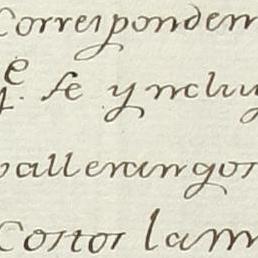 Correspondem
q.e se yncluy
vallerangos
Costos lam